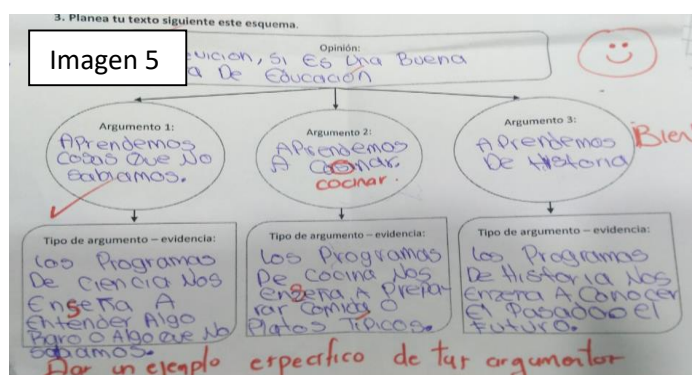 3. Planea tu texto siguiente este esquema.
Imagen 5
Opinión:
evicion, si Es Una Buena
a De Educación
Argumento 1:
APrendemos
Cosas Que No
sabiamos.
Argumento 2:
APrendemos
A
cocinar.
Argumento 3:
APrendemos
De Historia
Bien
Tipo de argumento – evidencia:
Los Programas
De Ciencia Nos
Enseña A
Entender Algo
Raro O Algo Que No
sabiamos.
Tipo de argumento – evidencia:
Los Programas
De Cocina Nos
Enseña A Prepa-
rar Comida O
Platos Tipicos.
Tipo de argumento – evidencia:
Los Programas
De Historia Nos
Enzena A Conocer
El Pasado o el
Futuro.
Dar un ejemplo especifico de tus argumentos